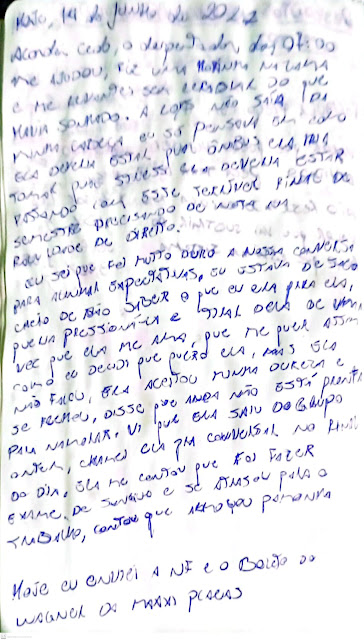 14 de Junho de 2022
Acordei cedo, o despertador das 07:00
me ajudou, fiz uma na cama
e me levantei sem lembrar do que
havia sonhado. A não saía da
minha cabeça eu só pensava em como
ela deveria estar, qual ônibus ela iria
tomar, qual stress ela deveria estar
passando com esse terrível final de
semestre precisando de nota na
faculdade de Direito.
Eu sei que foi muito dura a nossa conversa
para alinhar expectativas, eu estava de saco
cheio de não saber o que eu era para ela,
queria pressioná-la e tirar dela de uma
vez que ela me ama, que me quer assim
como eu decidi que quero ela, mas ela
não falou, ela aceitou minha dureza e
se fechou, disse que ainda não está pronta
para namorar. Vi que ela saiu do grupo
ontem, chamei ela pra conversar no final
do dia. Ela me contou que foi fazer
exame de sangue e se atrasou para o
trabalho, contou que almoçou pamonha
Hoje eu enviei a NF e o Boleto do
Wagner da Maxxi Placas